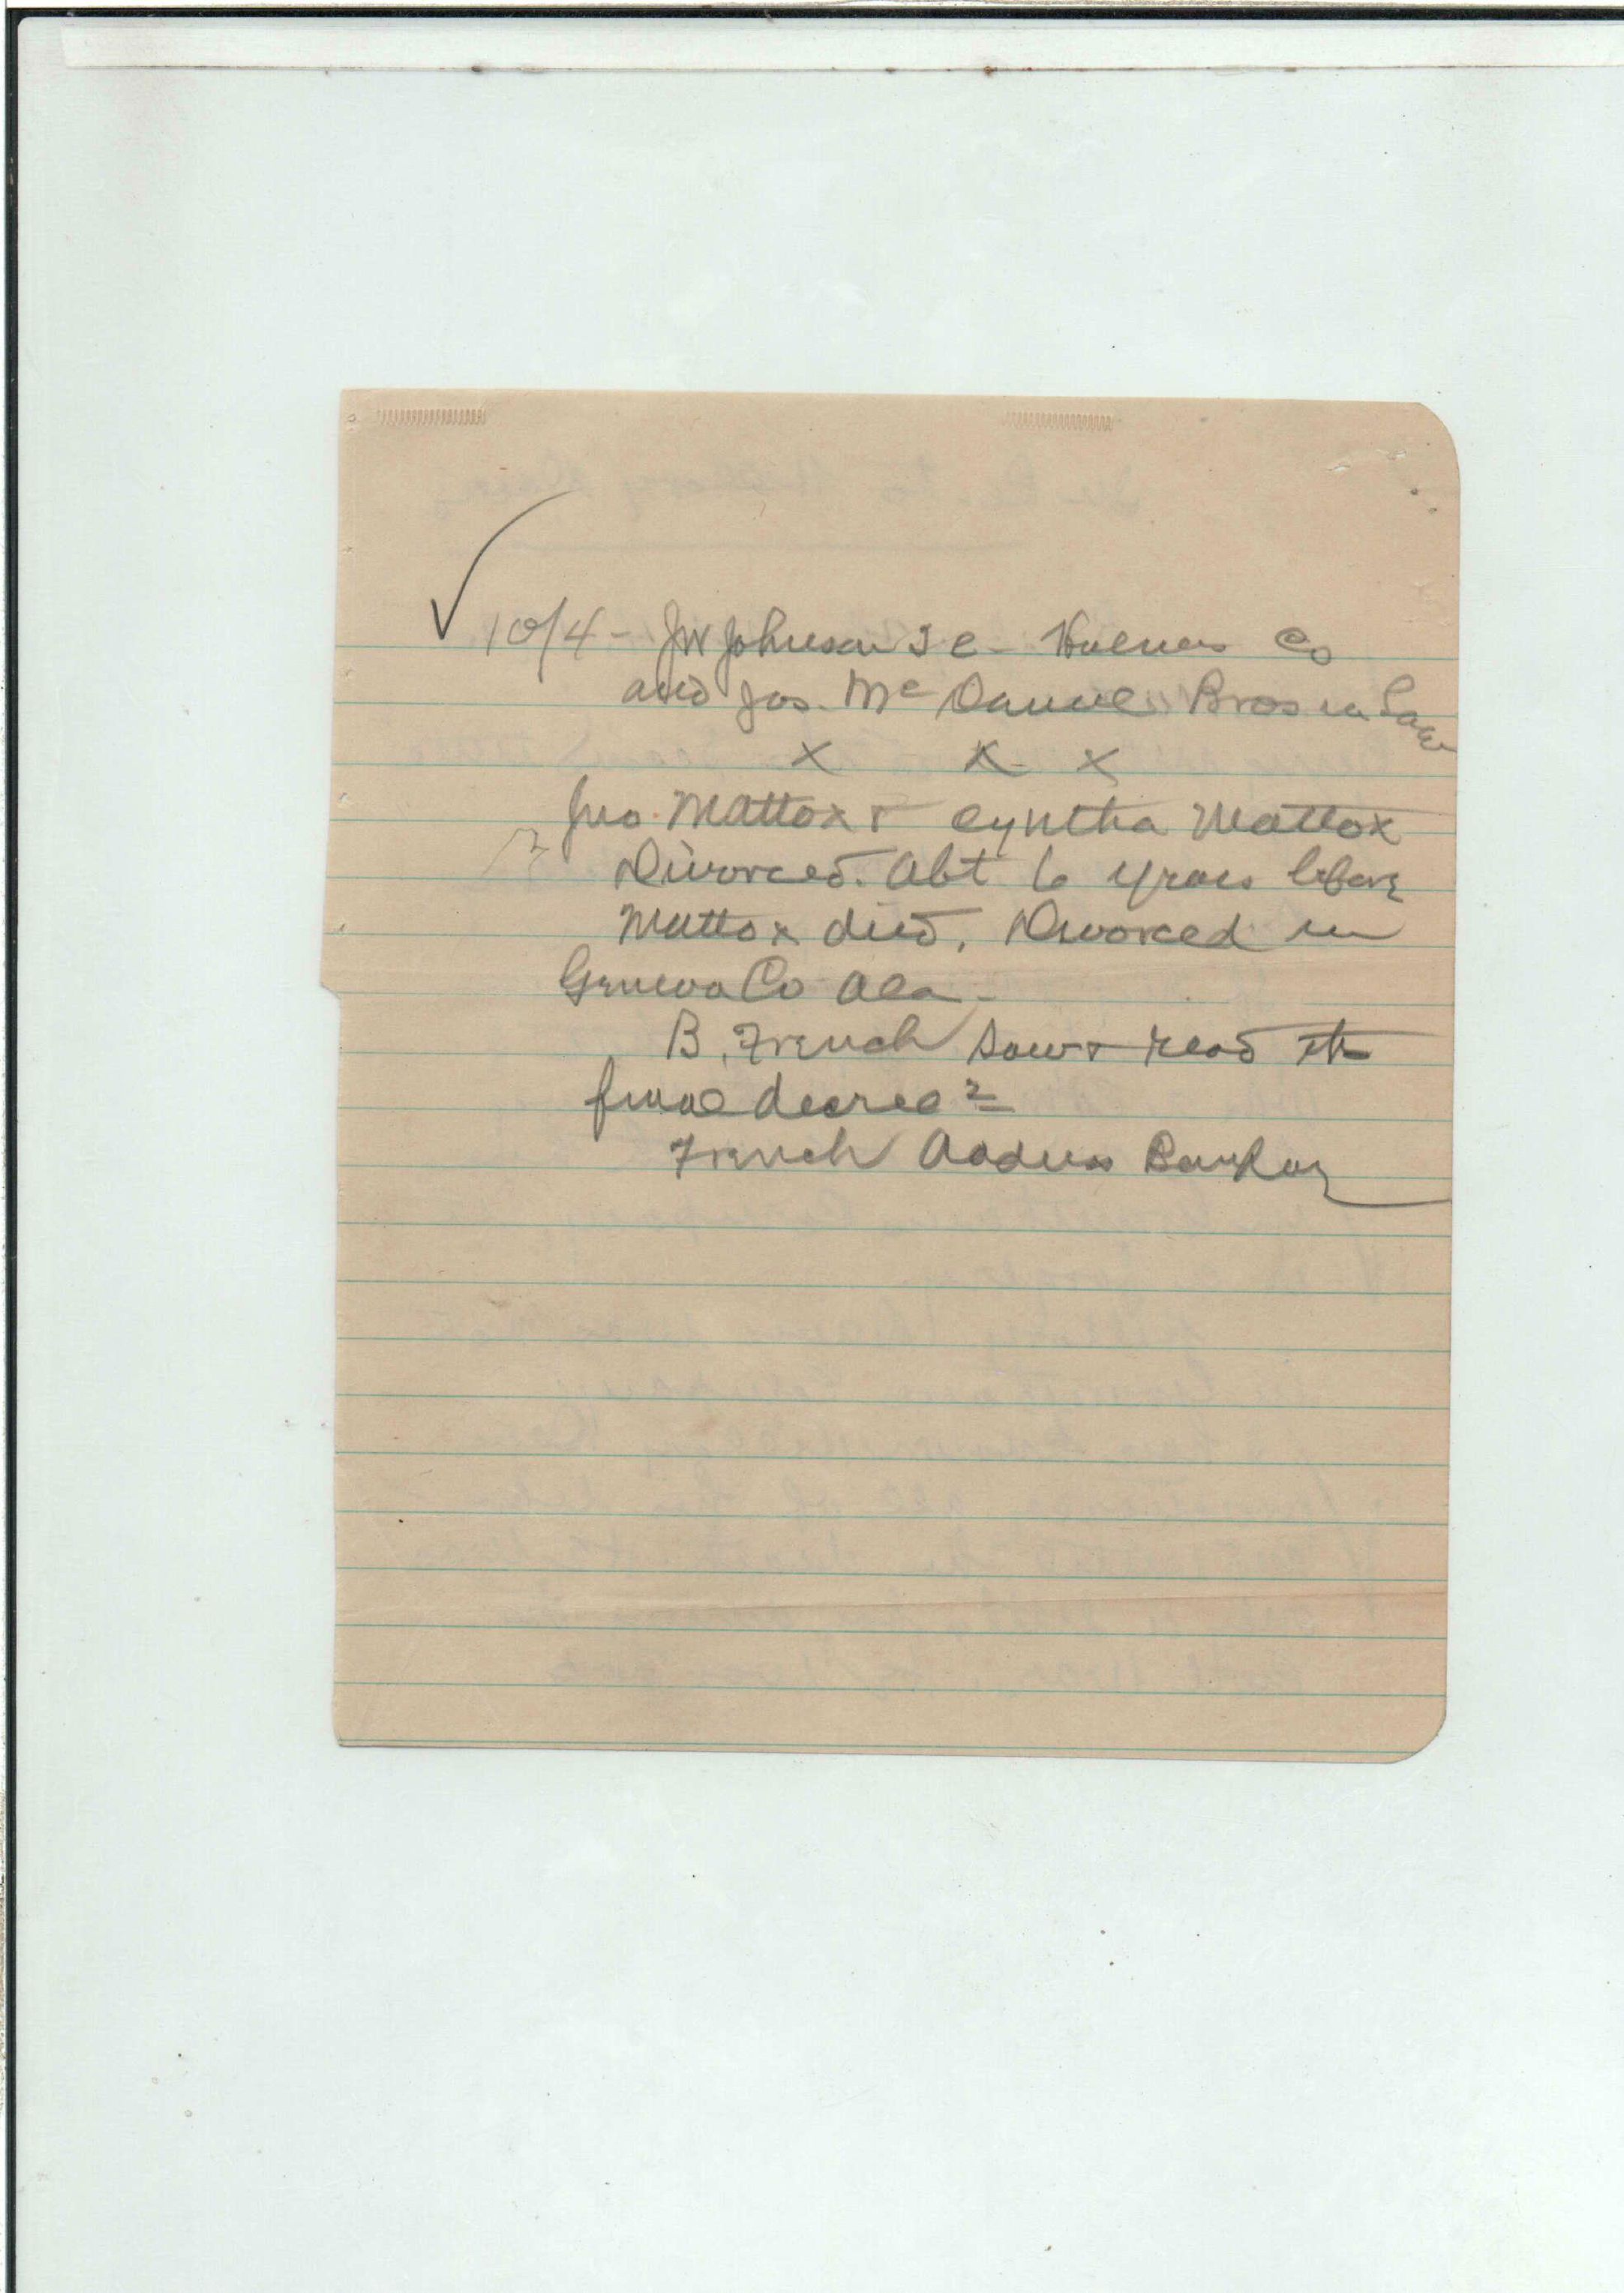 10/4 - JW Johnson J C - Holmes Co
and Jas. Mc Daniel Bros in Law
x x x
Jno. Mattox & Cyntha Mattox
Divorced. Abt 6 years before
Mattox died. Divorced in
Geneva Co Ala -
B. French saw & read the
final decree
French Address